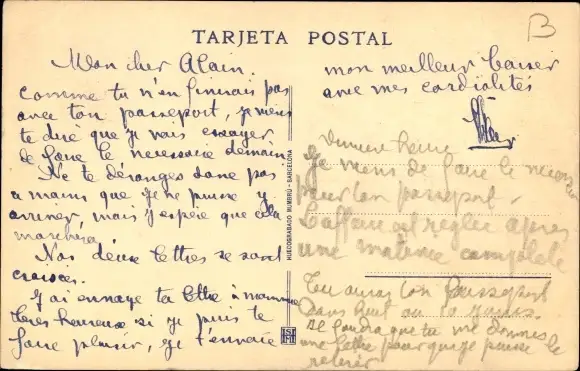 B
TARJETA POSTAL
Mon cher Alain.
comme tu n'en finirais pas
avec ton passeport, je viens
te dire que je vais essayer
de faire le nécessaire demain.
Ne te déranges donc pas
a moins que je ne puisse y
arriver, mais j'espère que cela
marchera
Nos deux lettres se sont
croisées.
J'ai envoyé ta lettre à maman
très heureuse si je puis te
faire plaisir, je t'envoie
HUECOGRABADO RUMBRÚ - BARCELONA
mon meilleur baiser
avec mes cordialités
Dernière heure
Je viens de faire le
pour ton passeport.
L'affaire est réglée après
une matinée complète
Tu auras ton passeport
dans huit ou 10 jours.
Il faudra que tu me donnes
une lettre pour que je puisse le
retirer